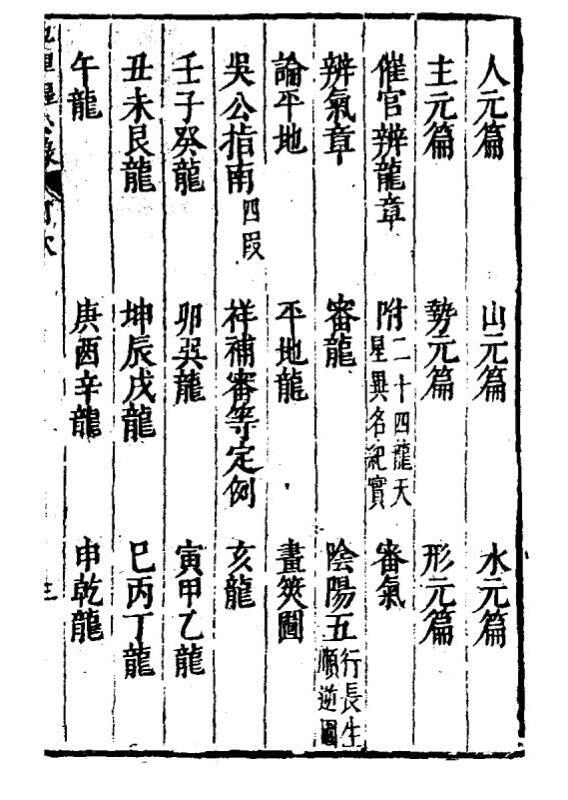 人元篇 山元篇 水元篇
主元篇 勢元篇 形元篇
催官辨龍章 附二十四龍天星異名紀實 審氣
辨氣章 審龍 陰陽五行長生順逆圖
論平地 平地龍 畫筴圖
吳公指南四段 祥補審等定例 亥龍
壬子癸龍 卯巽龍 寅甲乙龍
丑未艮龍 坤辰戌龍 巳丙丁龍
午龍 庚酉辛龍 申乾龍